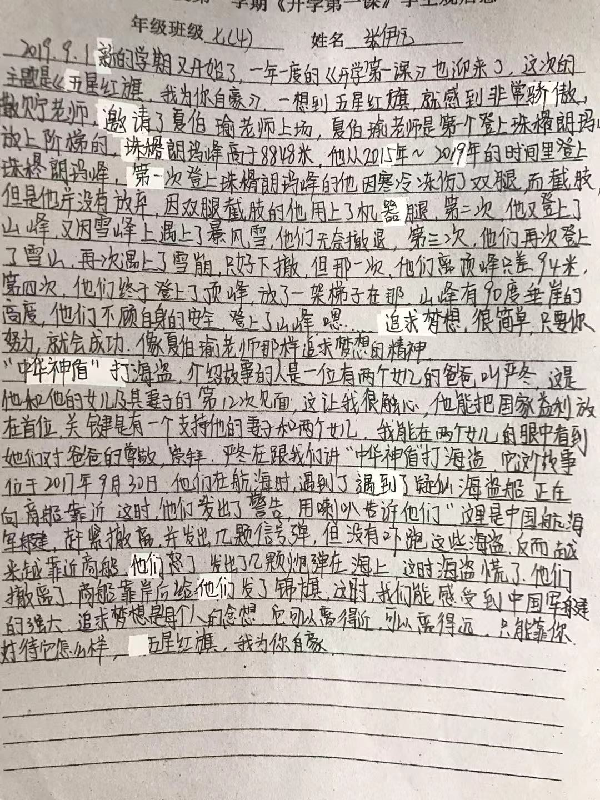 学期《开学第一课》学生观后感
年级班级 七(4) 姓名 张伊凡
2019.9.1新的学期又开始了,一年一度的《开学第一课》也迎来了,这次的
主题是《五星红旗,我为你自豪》,一想到五星红旗,就感到非常骄傲,
撒贝宁老师,邀请了夏伯瑜老师上场,夏伯瑜老师是第一个登上珠穆朗玛
放上阶梯的,珠穆朗玛峰高于8848米,他从2015年~2019年的时间里登上
珠穆朗玛峰,第一次登上珠穆朗玛峰的他因寒冷冻伤了双腿,而截肢,
但是他并没有放弃,因双腿截肢的他用上了机器腿,第二次,他又登上了
山峰,又因雪峰上遇上了暴风雪,他们无奈撤退,第三次,他们再次登上
了雪山,再次遇上了雪崩,只好下撤,但那一次,他们离顶峰只差94米,
第四次,他们终于登上了顶峰,放了一架梯子在那,山峰有90度垂岸的
高度,他们不顾自身的安全,登上了山峰嗯……追求梦想,很简单,只要你
努力,就会成功.像夏伯瑜老师那样追求梦想的精神
“中华神盾”打海盗,介绍故事的人是一位有两个女儿的爸爸,叫严冬,这是
他和他的女儿及其妻子的第12次见面,这让我很触心,他能把国家益利放
在首位,关键是有一个支持他的妻子和两个女儿,我能在两个女儿的眼中看到
她们对爸爸的尊敬,崇拜,严冬在跟我们讲“中华神盾打海盗,它这个故事
位于2017年9月30日,他们在航海时,遇到了遇到了疑似海盗船正在
向商船靠近,这时,他们发出了警告,用喇叭告诉他们”这里是中国航海
军舰建,赶紧撤离,并发出几颗信号弹,但没有吓跑这些海盗,反而越
来越靠近商船,他们怒了,发出了几颗炮弹在海上,这时海盗慌了,他们
撤离了,商船靠岸后给他们发了锦旗,这时,我们能感受到中国军舰建
的强大,追求梦想是每个人的念想,它可以离得近,可以离得远,只能靠你
对待它怎么样,五星红旗,我为你自豪